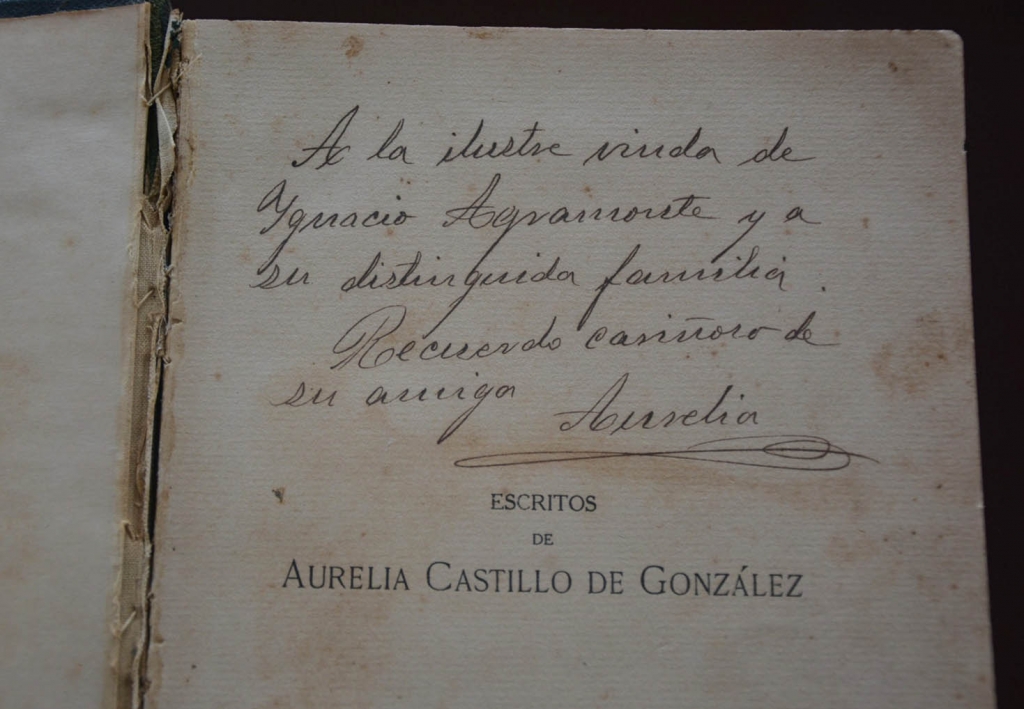 A la ilustre viuda de
Ygnacio Agramonte y a
su distinguida familia.
Recuerdo cariñoso de
su amiga
Aurelia
ESCRITOS
DE
AURELIA CASTILLO DE GONZÁLEZ